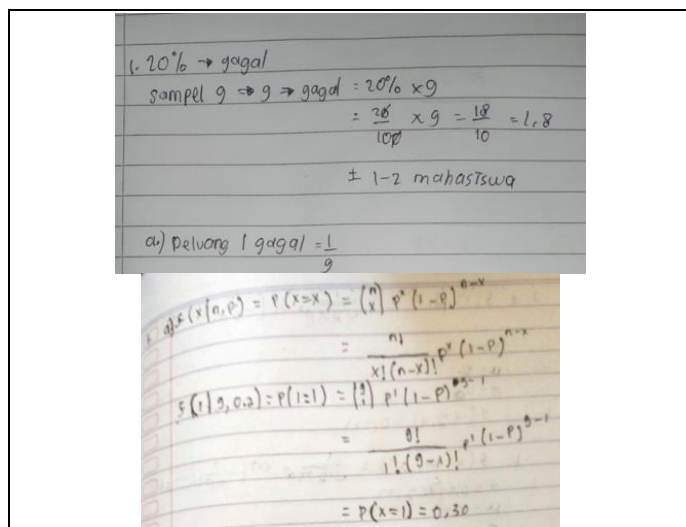 1. 20% → gagal
sampel 9 → 9 → gagal = 20% × 9
= 20/100 × 9 = 18/10 = 1,8
± 1-2 mahasiswa
a.) Peluang 1 gagal = 1/9
a) f(x|n,p) = P(x=x) = (n x) p^x (1-p)^n-x
= n!/x!(n-x)! p^x (1-p)^n-x
f(1|9,0.2) = P(1=1) = (9 1) p^1 (1-p)^9-1
= 9!/1!·(9-1)! p^1 (1-p)^9-1
= P(x=1) = 0,30